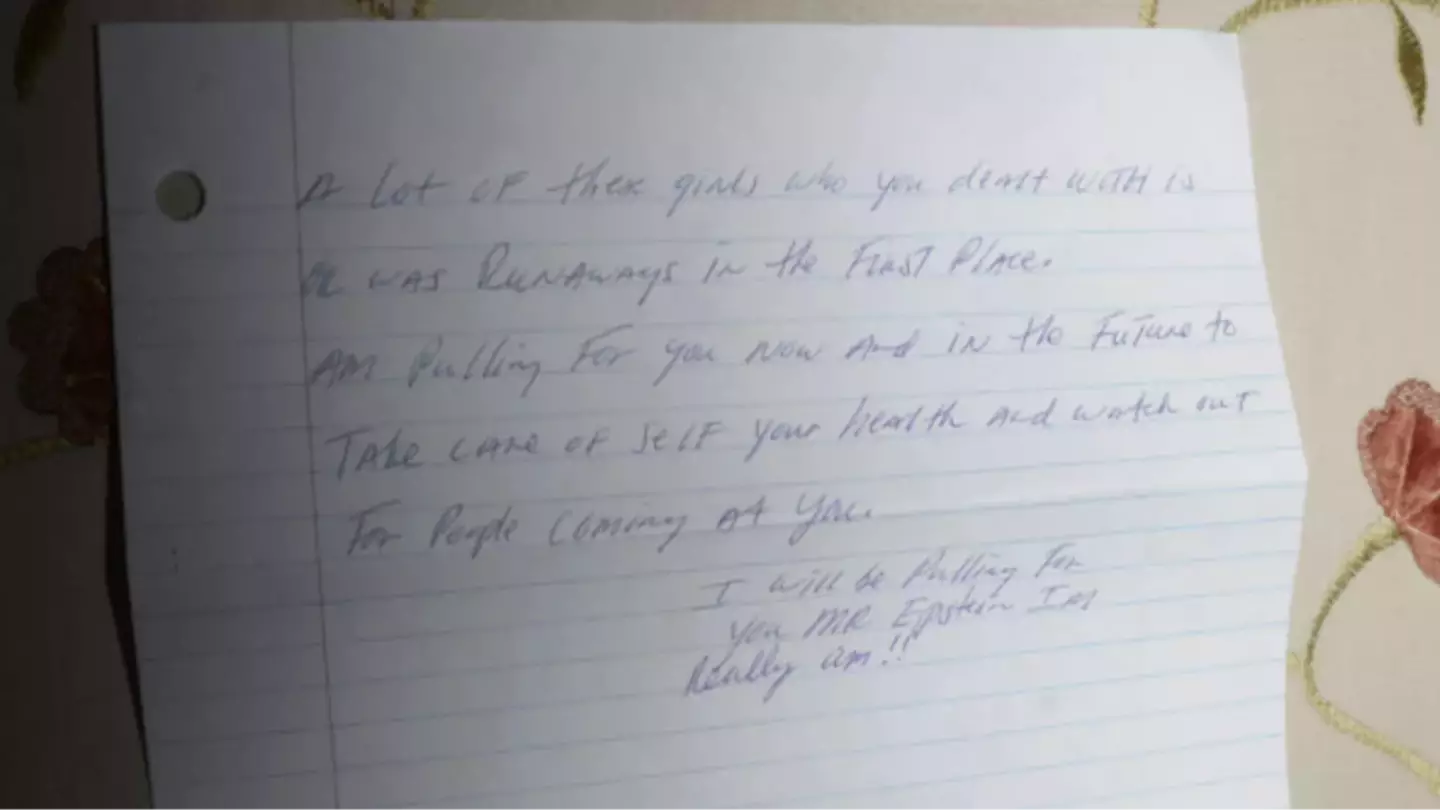 A Lot of these girls who you dealt with is
or was Runaways in the First Place.
Am Pulling For you now And in the Future to
Take care of self your health and watch out
For People Coming At You.
I will be Pulling For
you MR Epstein I AM
Really am!!